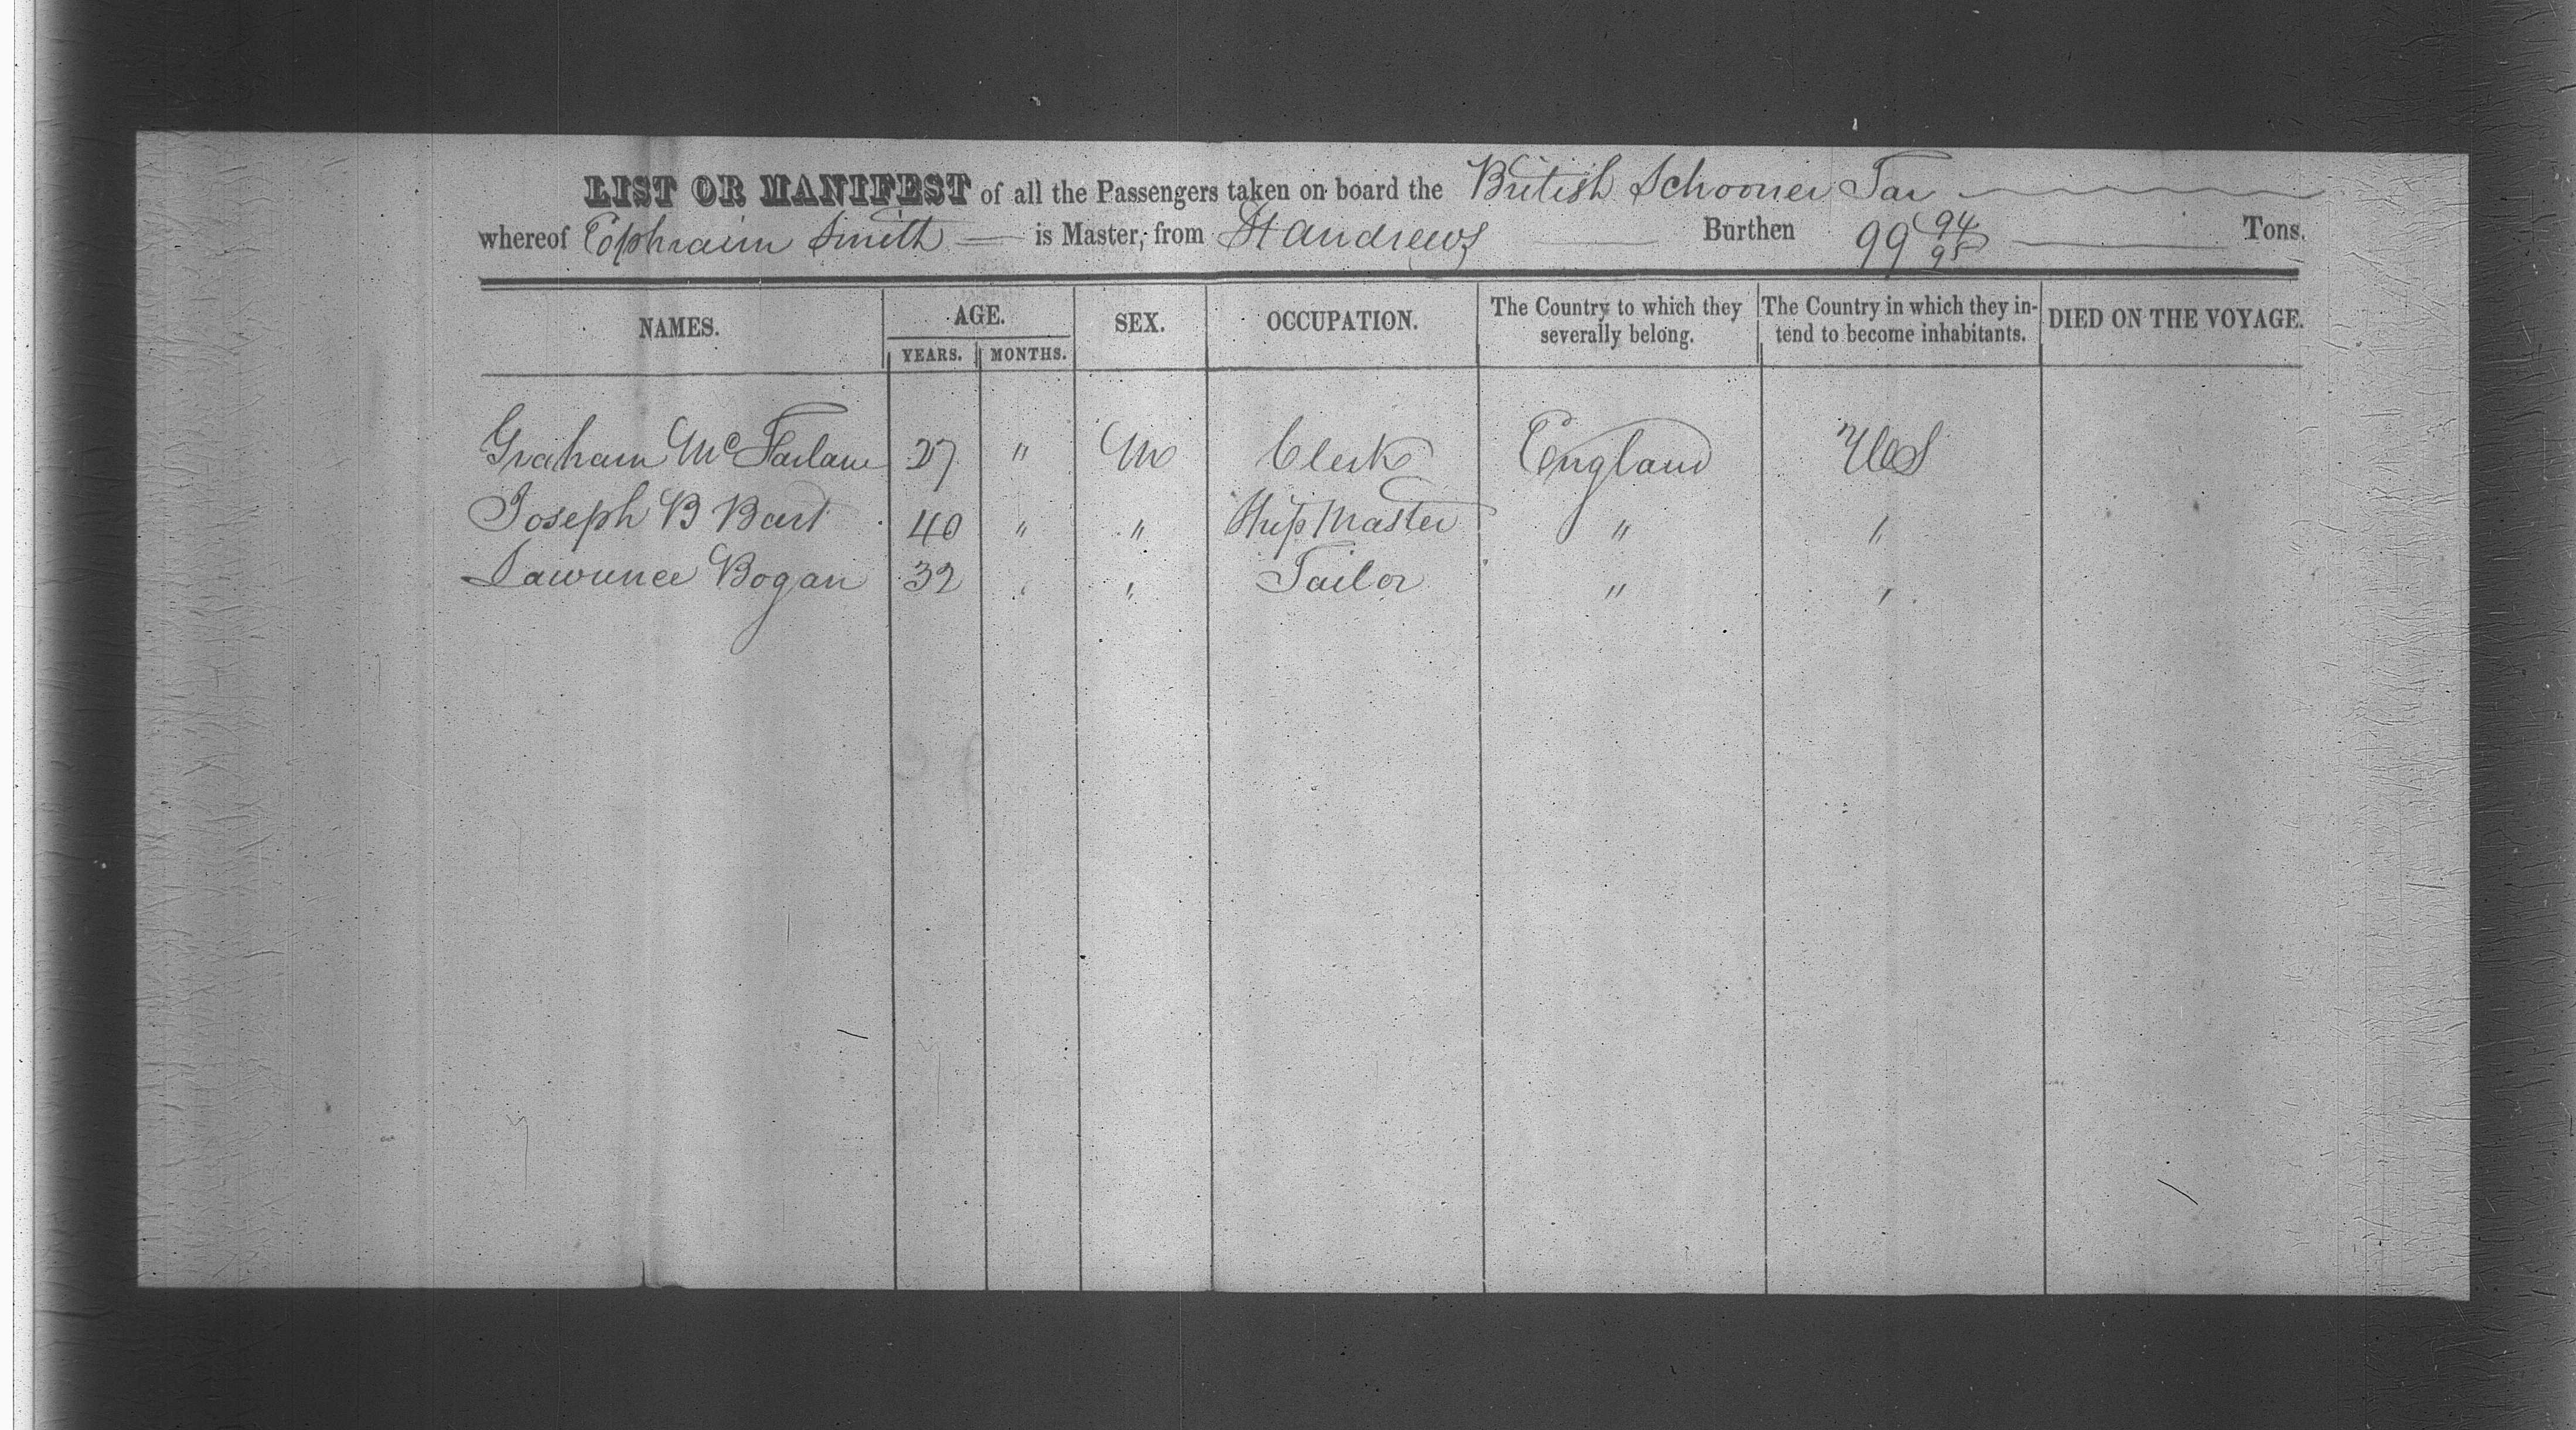 LIST OR MANIFEST of all the Passengers taken on board the British Schooner Tar
whereof Ephraim Smith is Master, from St Andrews Burthen 99 94/95 Tons.
NAMES. AGE. SEX. OCCUPATION. The Country to which they severally belong. The Country in which they intend to become inhabitants. DIED ON THE VOYAGE.
YEARS. MONTHS.
Graham McFarlane 27 " M Clerk England U S
Joseph B Bart 40 " " Ship Master " "
Lawrence Bogan 32 " " Tailor " "